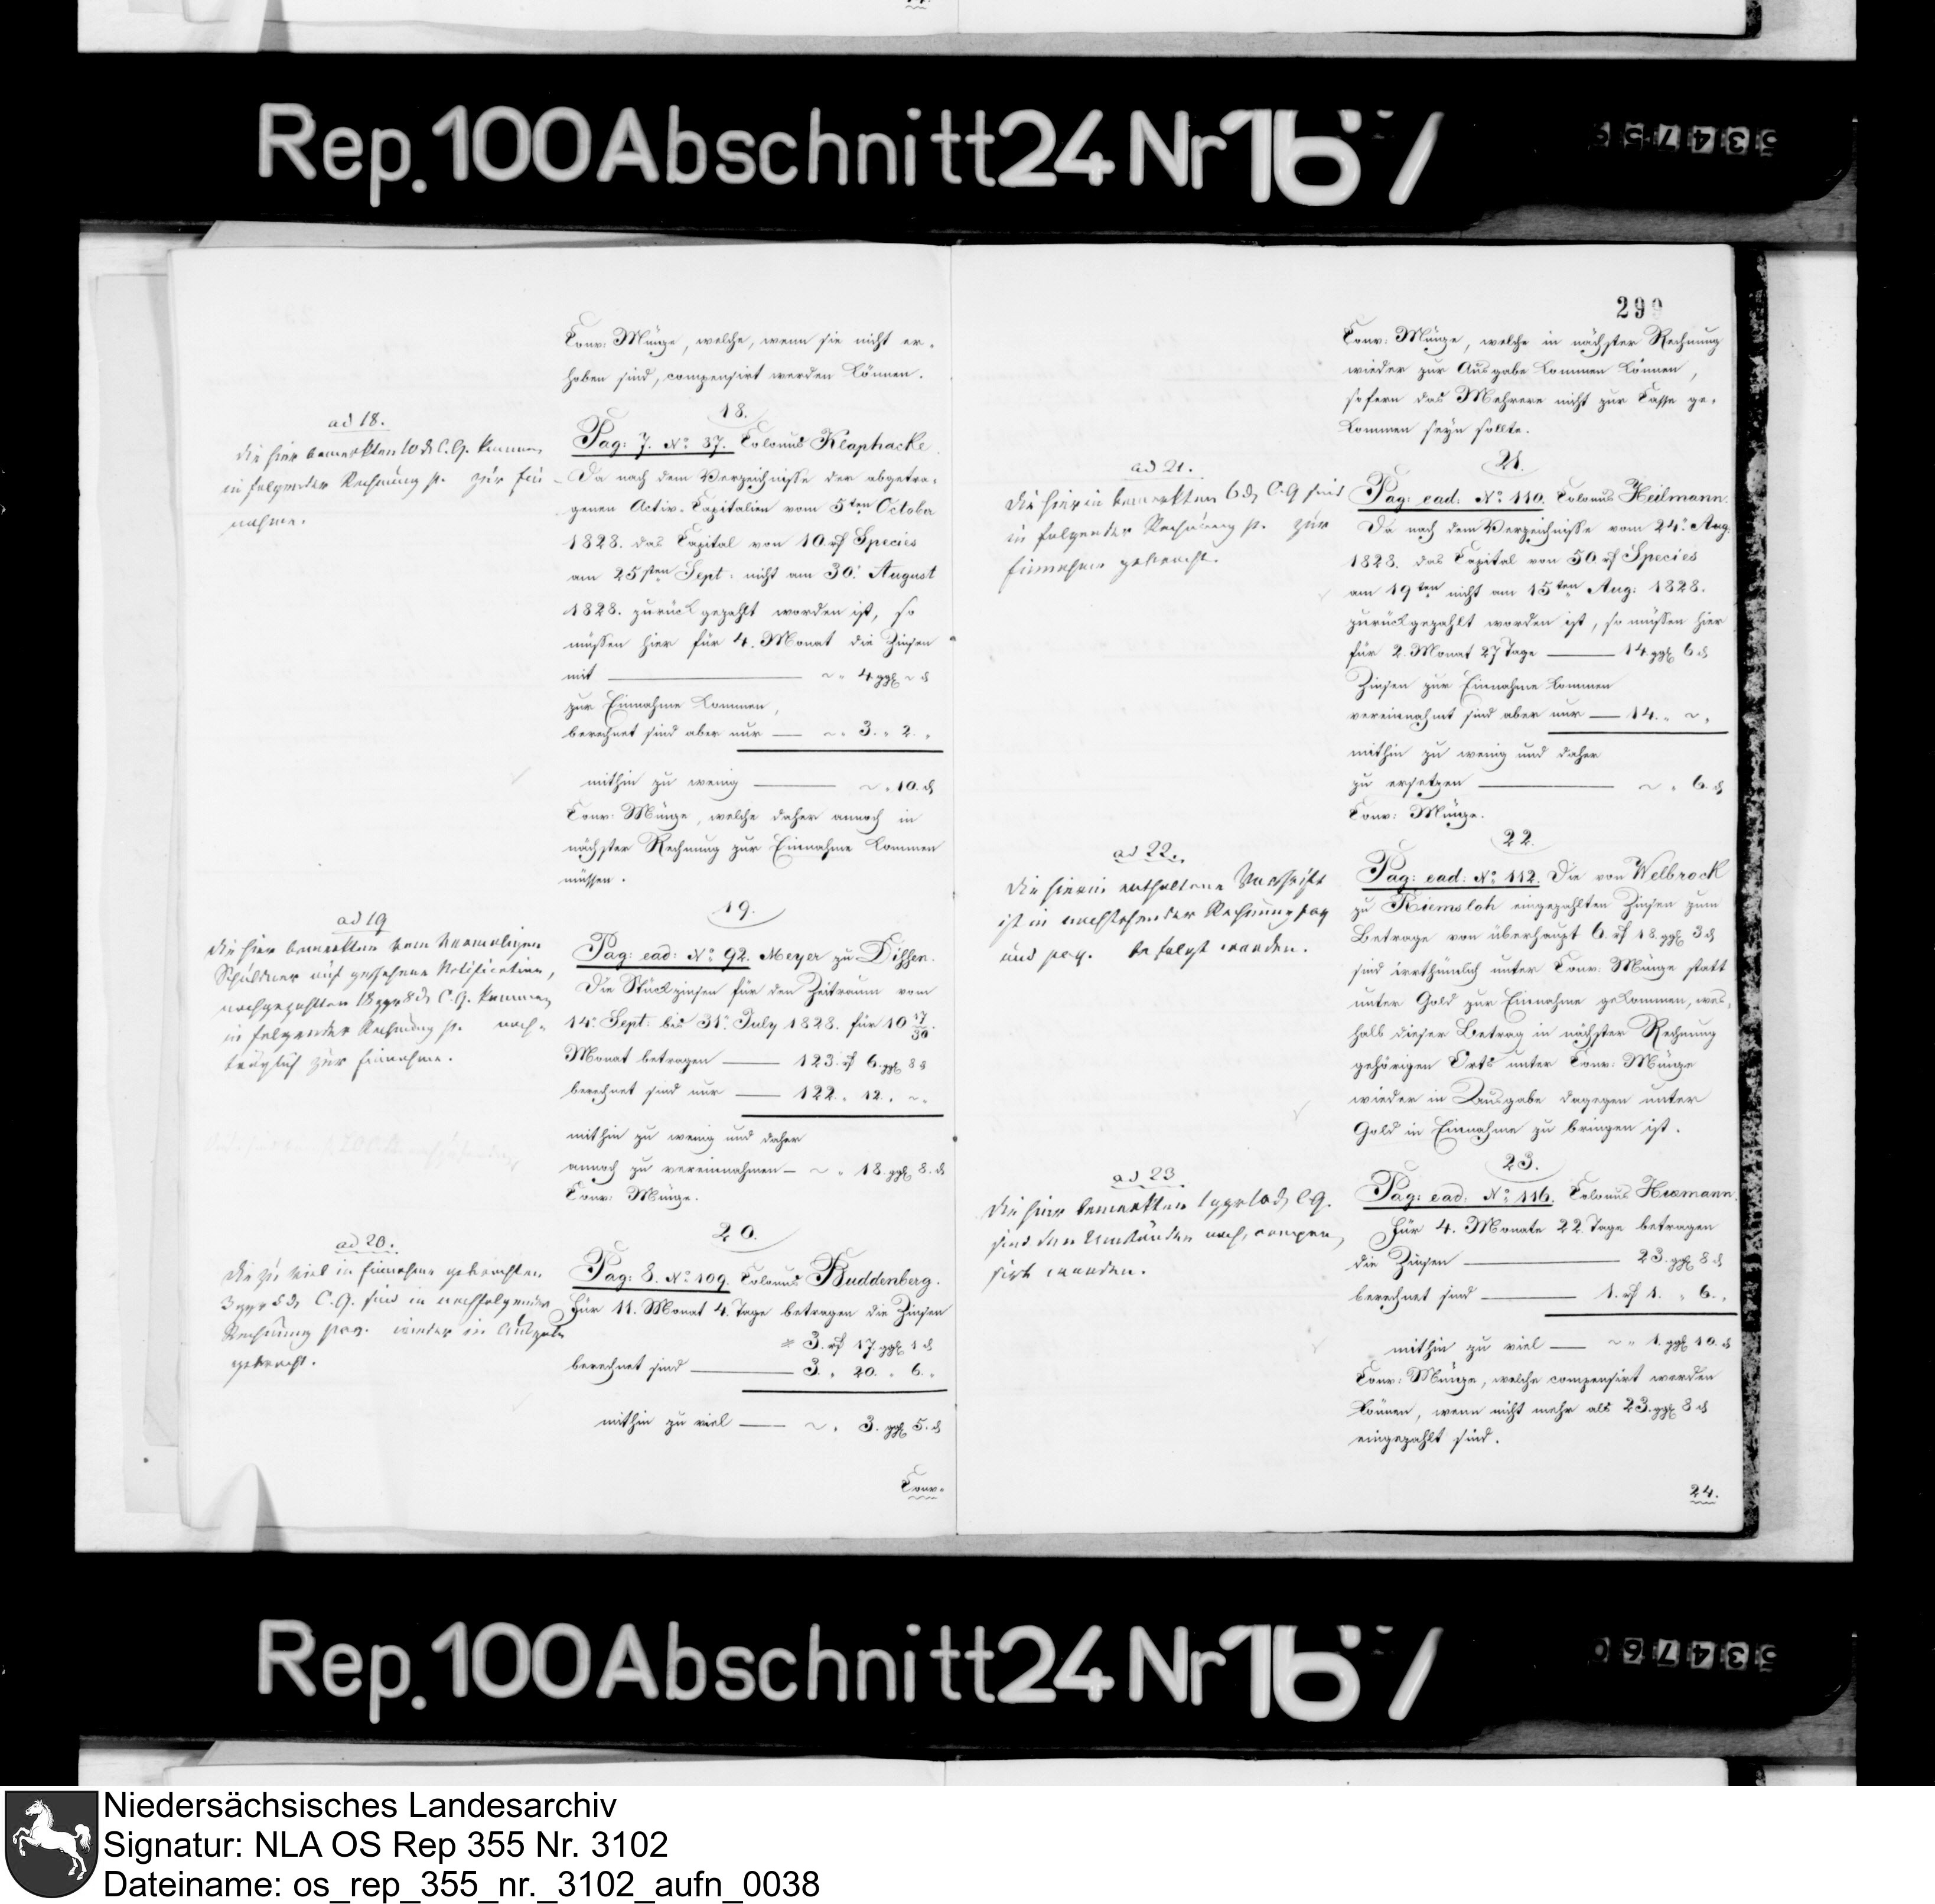 Rep. 100 Abschnitt 24 Nr 167
Conv: Münze, welche, wenn sie nicht er-
hoben sind, compensirt werden können.
ad 18.
die hier bemerkten 10 ₰ C. G. kommen
in folgender Rechnung p. zur Ein-
nahme.
18.
Pag: 7. No 37. Colonus Klaphacke.
Da nach dem Verzeichnisse der abgetra-
genen Activ-Capitalien vom 5ten October
1828. das Capital von 10 rf Species
am 25sten Sept: nicht am 30. August
1828. zurückgezahlt worden ist, so
müssen hier für 4. Monat die Zinsen
mit — ~ " 4 ggr ~ ₰
zur Einnahme kommen,
berechnet sind aber nur — ~ " 3. " 2. "
mithin zu wenig — ~ " 10. ₰
Conv: Münze, welche daher annoch in
nächster Rechnung zur Einnahme kommen
müssen.
ad 19
die hier bemerkten vom vormaligen
Schuldner auf geschehene Notification,
nachgezahlten 18 ggr 8 ₰ C. G. kommen
in folgender Rechnung p. nach-
träglich zur Einnahme.
19.
Pag: ead: No 92. Meyer zu Dissen.
Die Stückzinsen für den Zeitraum vom
14. Sept: bis 31. July 1828. für 10 17/30.
Monat betragen — 123. rf 6. ggr 8 ₰
berechnet sind nur — 122. " 12. " ~ "
mithin zu wenig und daher
annoch zu vereinnahmen — ~ " 18. ggr 8. ₰
Conv: Münze.
ad 20.
die zu viel in Einnahme gebrachten
3 ggr 5 ₰ C. G. sind in nachfolgender
Rechnung pag. wieder in Ausgabe
gebracht.
20.
Pag: 8. No 109. Colonus Buddenberg.
Für 11. Monat 4. Tage betragen die Zinsen
3. rf 17. ggr 1 ₰
berechnet sind — 3. " 20. " 6. "
mithin zu viel — ~ " 3. ggr 5. ₰
Conv-
299
Conv: Münze, welche in nächster Rechnung
wieder zur Ausgabe kommen können,
sofern das Mehrere nicht zur Casse ge-
kommen seyn sollte.
ad 21.
die hierin bemerkten 6 ₰ C. G sind
in folgender Rechnung p. zur
Einnahme gebracht.
21.
Pag: ead: No 110. Colonus Heilmann.
Da nach dem Verzeichnisse vom 24. Aug.
1828. das Capital von 50. rf Species
am 19ten nicht am 15ten Aug: 1828.
zurückgezahlt worden ist, so müssen hier
für 2. Monat 27 Tage — 14. ggr 6 ₰
Zinsen zur Einnahme kommen
vereinnahmt sind aber nur — 14. " ~ "
mithin zu wenig und daher
zu ersetzen — ~ " 6. ₰
Conv: Münze.
ad 22.
die hierin enthaltene Vorschrift
ist in nachstehender Rechnung pag
und pag. befolgt worden.
22.
Pag: ead: No 112. Die von Welbrock
zu Riemsloh eingezahlten Zinsen zum
Betrage von überhaupt 6. rf 18. ggr 3 ₰
sind irrthümlich unter Conv: Münze statt
unter Gold zur Einnahme gekommen, wes-
halb dieser Betrag in nächster Rechnung
gehörigen Orts unter Conv: Münze
wieder in Ausgabe dagegen unter
Gold in Einnahme zu bringen ist.
ad 23.
die hier bemerkten 1 ggr 10 ₰ C G.
sind den Umständen nach, compen-
sirt worden.
23.
Pag: ead: No 116. Colonus Husmann.
Für 4. Monate 22. Tage betragen
die Zinsen — 23. ggr 8 ₰
berechnet sind — 1. rf 1. " 6. "
mithin zu viel — ~ " 1. ggr 10. ₰
Conv: Münze, welche compensirt werden
können, wenn nicht mehr als 23. ggr 8 ₰
eingezahlt sind.
24.
Rep. 100 Abschnitt 24 Nr 167
534760
Niedersächsisches Landesarchiv
Signatur: NLA OS Rep 355 Nr. 3102
Dateiname: os_rep_355_nr._3102_aufn_0038